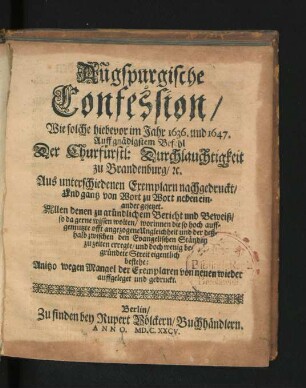 Augspurgische
Confession/
Wie solche hiebevor im Jahr 1636. und 1647.
Auff gnädigstem Befehl
Der Churfürstl: Durchlauchtigkeit
zu Brandenburg/ ꝛc.
Aus unterschiedenen Exemplarn nachgedruckt/
Und gantz von Wort zu Wort neben ein-
ander gesetzet.
Allen denen zu gründlichem Bericht und Beweiß/
so da gerne wissen wolten/ worinnen die so hoch auff-
gemutzte offt angezogene Ungleichheit und der deß-
halb zwischen den Evangelischen Ständen
zu zeiten erregte/ und doch wenig be-
gründete Streit eigentlich
bestehe:
Anitzo wegen Mangel der Exemplaren von neuen wieder
auffgeleget und gedruckt.
Berlin/
Zu finden bey Rupert Völckern/ Buchhändlern.
ANNO. MDC.XXCV.